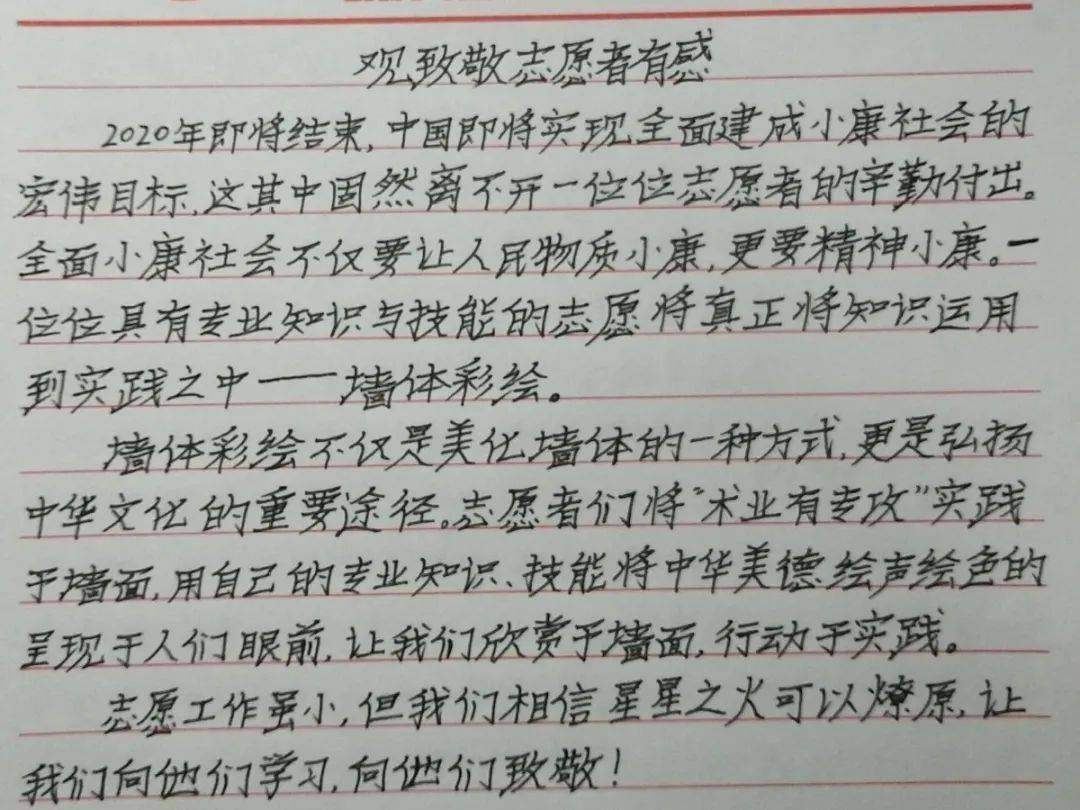 观致敬志愿者有感
2020年即将结束,中国即将实现全面建成小康社会的
宏伟目标,这其中固然离不开一位位志愿者的辛勤付出。
全面小康社会不仅要让人民物质小康,更要精神小康。一
位位具有专业知识与技能的志愿将真正将知识运用
到实践之中——墙体彩绘。
墙体彩绘不仅是美化墙体的一种方式,更是弘扬
中华文化的重要途径。志愿者们将“术业有专攻”实践
于墙面,用自己的专业知识、技能将中华美德绘声绘色的
呈现于人们眼前,让我们欣赏于墙面,行动于实践。
志愿工作虽小,但我们相信星星之火可以燎原,让
我们向他们学习,向他们致敬!